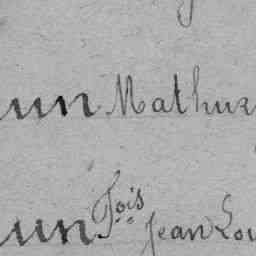 un Mathur
un Fois Jean Lou